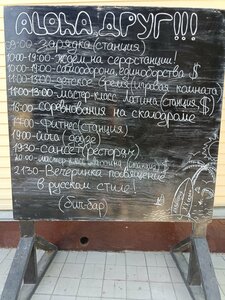 ALOHA, ДРУГ!!!
09:00-зарядка (станция)
10:00-19:00-ждем на серфстанции!
10:00-19:00-сапборды, единоборства $
11:00-13:00-детское время (игровая комната
11:00-13:00-мастер-класс Латина (станция, $)
16:00-Соревнования на скалодроме
17:00-Фитнес (станция)
19:00-йога (
19:30-Сансет (ресторан)
20:00-мастер-класс (станция, $)
21:30-Вечеринка посвящение
в русском стиле!
(бич-бар)